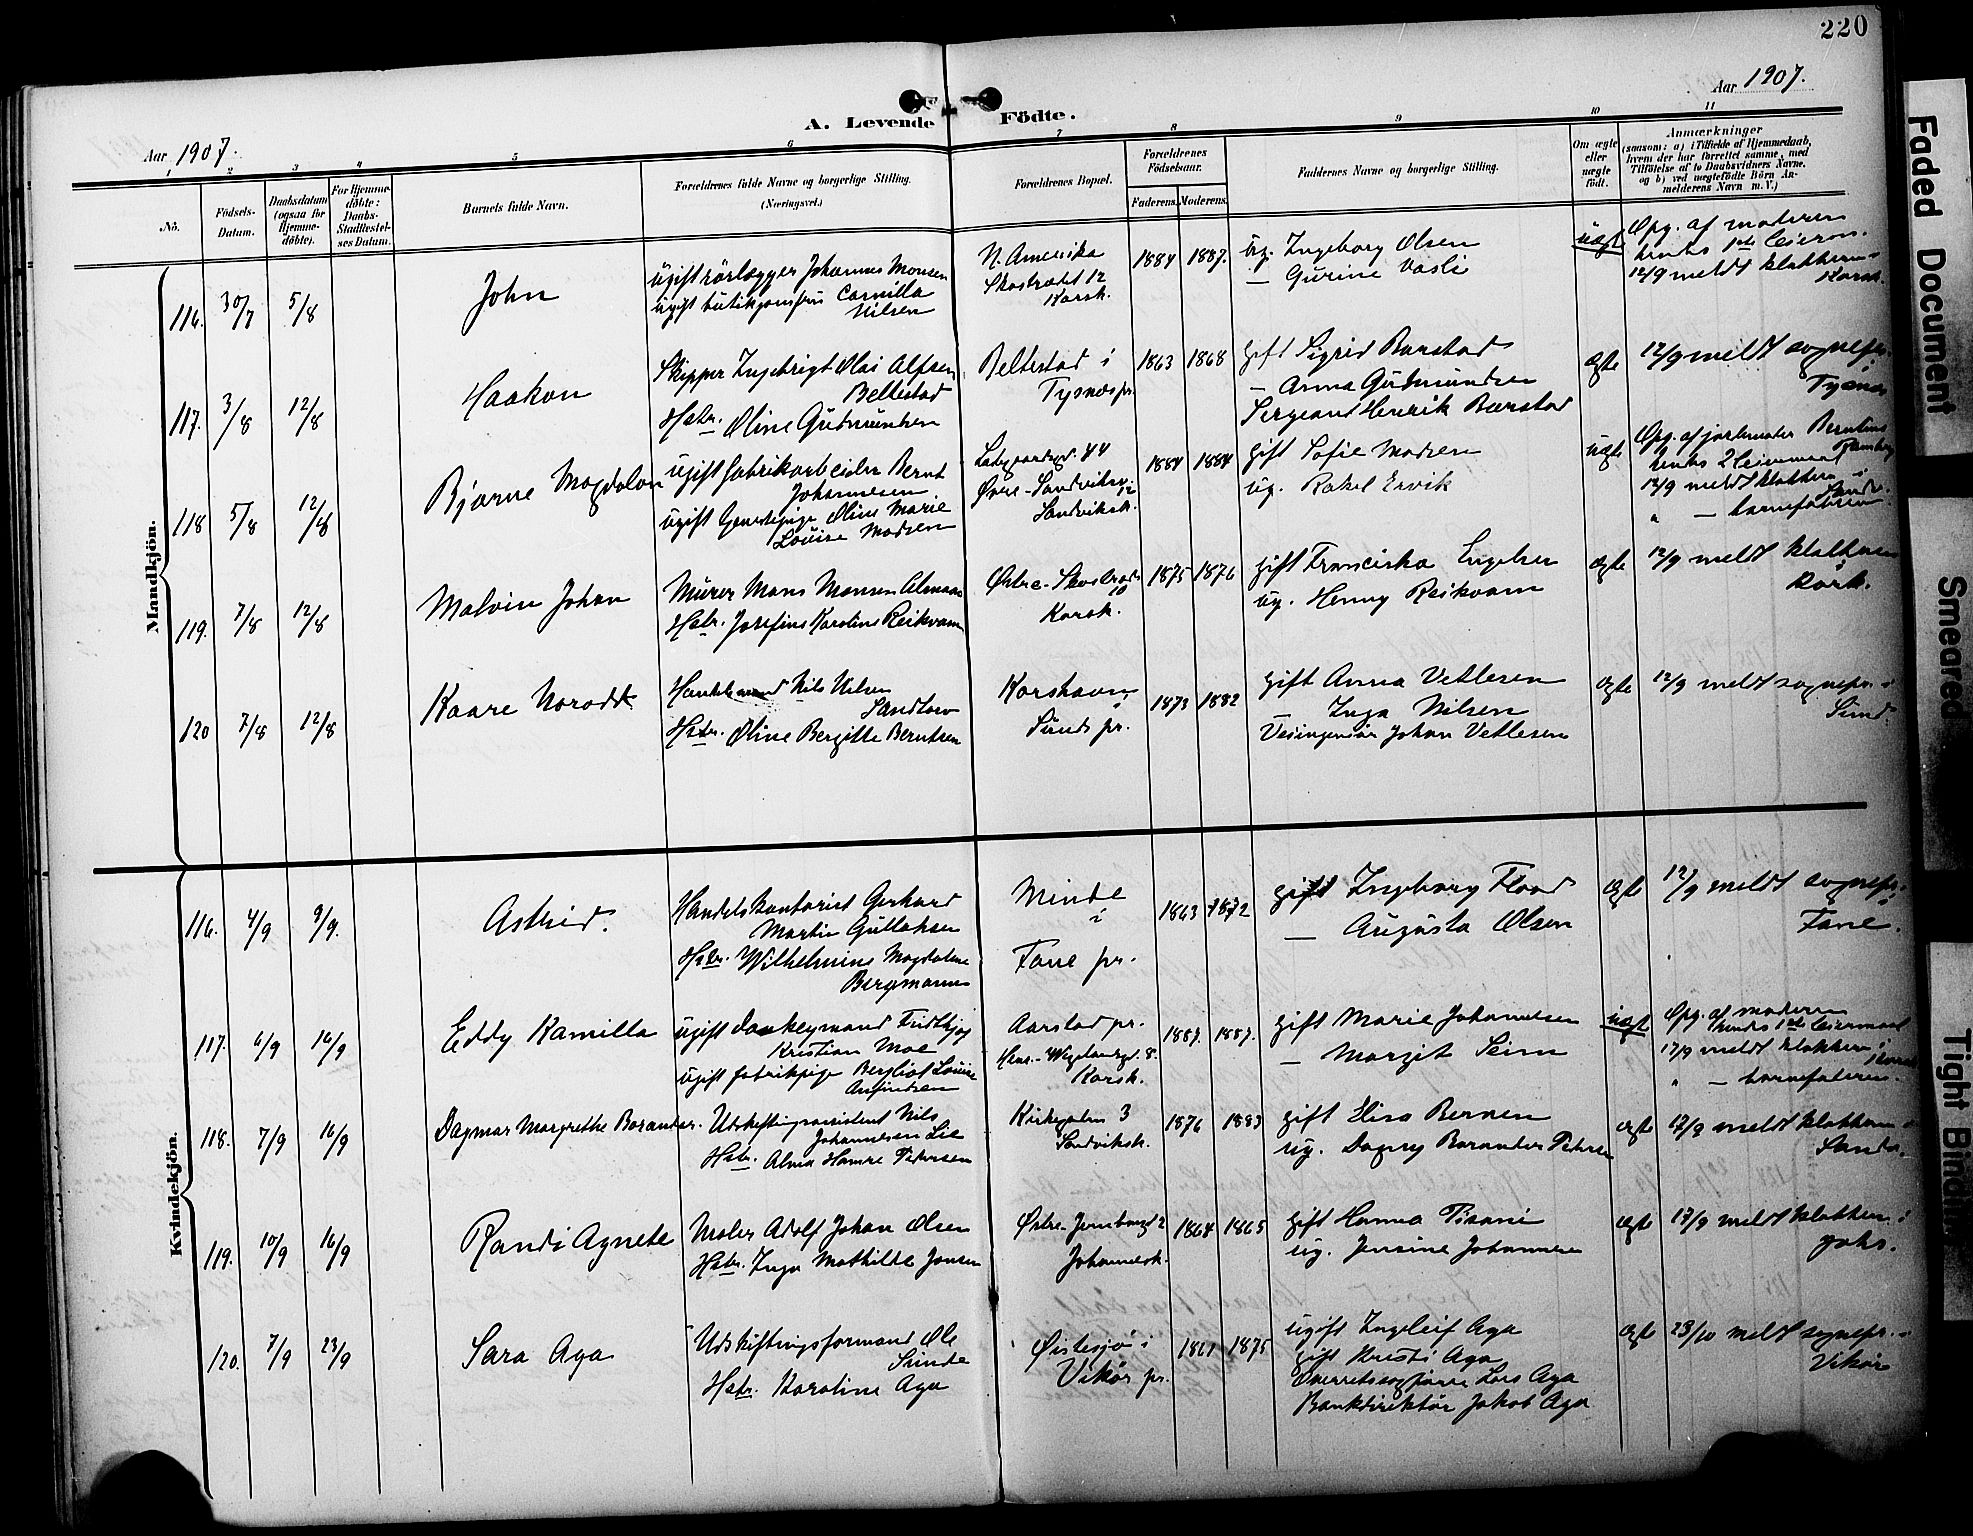 220
Aar 1907.
Aar 1907.
A. Levende Födte.
1 2 3 4 5 6 7 8 9 10 11
No.
Födsels-Datum.
Daabsdatum (ogsaa for Hjemme-döbte).
For Hjemme-döbte: Daabs-Stadfestel-ses Datum.
Barnets fulde Navn.
Forældrenes fulde Navne og borgerlige Stilling. (Næringsvei.)
Forældrenes Bopæl.
Forældrenes Födselsaar.
Faderens. Moderens.
Faddernes Navne og borgerlige Stilling.
Om ægte eller uægte födt.
Anmærkninger
(saasom: a) i Tilfælde af Hjemmedaab,
hvem der har forrettet samme, med
Tilföielse af to Daabsvidners Navne,
og b) ved uægtefödte Börn An-
melderens Navn m. V.)
Mandkjön.
116. 30/7 5/8
John
ugift rörlægger Johannes Monsen
ugift butikjomfru Camilla
Nilsen
N. Amerika
Skostrædet 12
Korsk.
1884 1887.
ug. Ingeborg Olsen
— Gurine Vasli
uægte
Opg. af moderen
hendes 1ste leierm.
12/9 meldt klokkeren i
Korsk.
117. 3/8 12/8
Haakon
Skipper Ingebrigt Olai Alfsen
Beltestad
Hstr. Oline Gudmundsen
Beltestad i
Tysnes pr.
1863 1868
gift Sigrid Barstad
— Anna Gudmundsen
Sergeant Henrik Barstad
ægte
12/9 meldt sognepr.
Tysnes
118 5/8 12/8
Bjarne Magdalon
ugift fabrikarbeider Bernt
Johannesen
ugift Oline Marie
Louise Madsen
Ladegaardsgd. 44
Øvre-Sandviksv. 12
Sandviksk.
1884 1884
gift Sofie Madsen
ug. Rakel Ervik
uægte
Opg. af jordemoder Berntine
hendes 2 leiermaal
12/9 meldt klokkeren i
Sandv.
" — barnefaderen
119. 7/8 12/8
Malvin Johan
Murer Mons Monsen
Hstr. Josefine Karoline Reikvam
Østre-Skostræde
10
Korsk.
1875 1876
gift Franciska Engelsen
ug. Henny Reikvam
ægte
12/9 meldt klokkeren
i Korsk.
120 7/8 12/8
Kaare Norodd
Handelsmand Nils Nilsen
Sandtorv
Hstr. Oline Bergitte Berntsen
Korshavn
i
Sunds pr.
1873 1882
gift Anna Vetlesen
— Inga Nilsen
Veiingeniør Johan Vetlesen
ægte
12/9 meldt sognepr. i
Sund.
Kvindekjön.
116. 4/9 9/9.
Astrid.
Handelskontorist Gerhard
Martin Gullaksen
Hstr. Wilhelmine Magdalene
Bergmann
Minde
i
Fane pr.
1863 1872
gift Ingeborg Flood
— Augusta Olsen
ægte
12/9 meldt sognepr. i
Fane.
117. 6/9 16/9
Eddy Kamilla
ugift donkeymand Fridthjof
Kristian Moe
ugift fabrikpige Bergliot Louise
Anfindsen
Aarstad pr.
Henr. Wergelandsgd. 8.
Korsk.
1887. 1887.
gift Marie Johannesen
— Margit Seim
uægte
Opg. af moderen
hendes 1ste leiermaal
17/9 meldt klokkeren i
Korsk.
" — barnefaderen.
118. 7/9 16/9
Dagmar Margrethe Borander.
Udskiftningsassistent Nils
Johannesen Lie
Hstr. Alma Hamre Petersen
Kirkegaden 3
Sandviksk.
1876 1883
gift Elisa Bernen
ug. Dagny Borander Petersen
ægte
17/9 meldt klokkeren i
Sandv.
119. 10/9 16/9
Randi Agnete
Maler Adolf Johan Olsen
Hstr. Inga Mathilde Jansen
Østre-Jernbangd 2
Johannesk.
1864 1865
gift Hanna Pisani
ug. Jensine Johannesen
ægte
17/9 meldt klokkeren i
Johs.
120. 7/9 23/9
Sara Aga
Udskiftningsformand Ole
Sunde
Hstr. Karoline Aga
Øistesjø i
Vikør pr.
1861 1875
ugift Ingleif Aga
gift Kristi Aga
Overretssagfører Lars Aga
Bankdirektør Jakob Aga
ægte
23/10 meldt sognepr. i
Vikør
Faded Document
Smeared
Tight Bindin